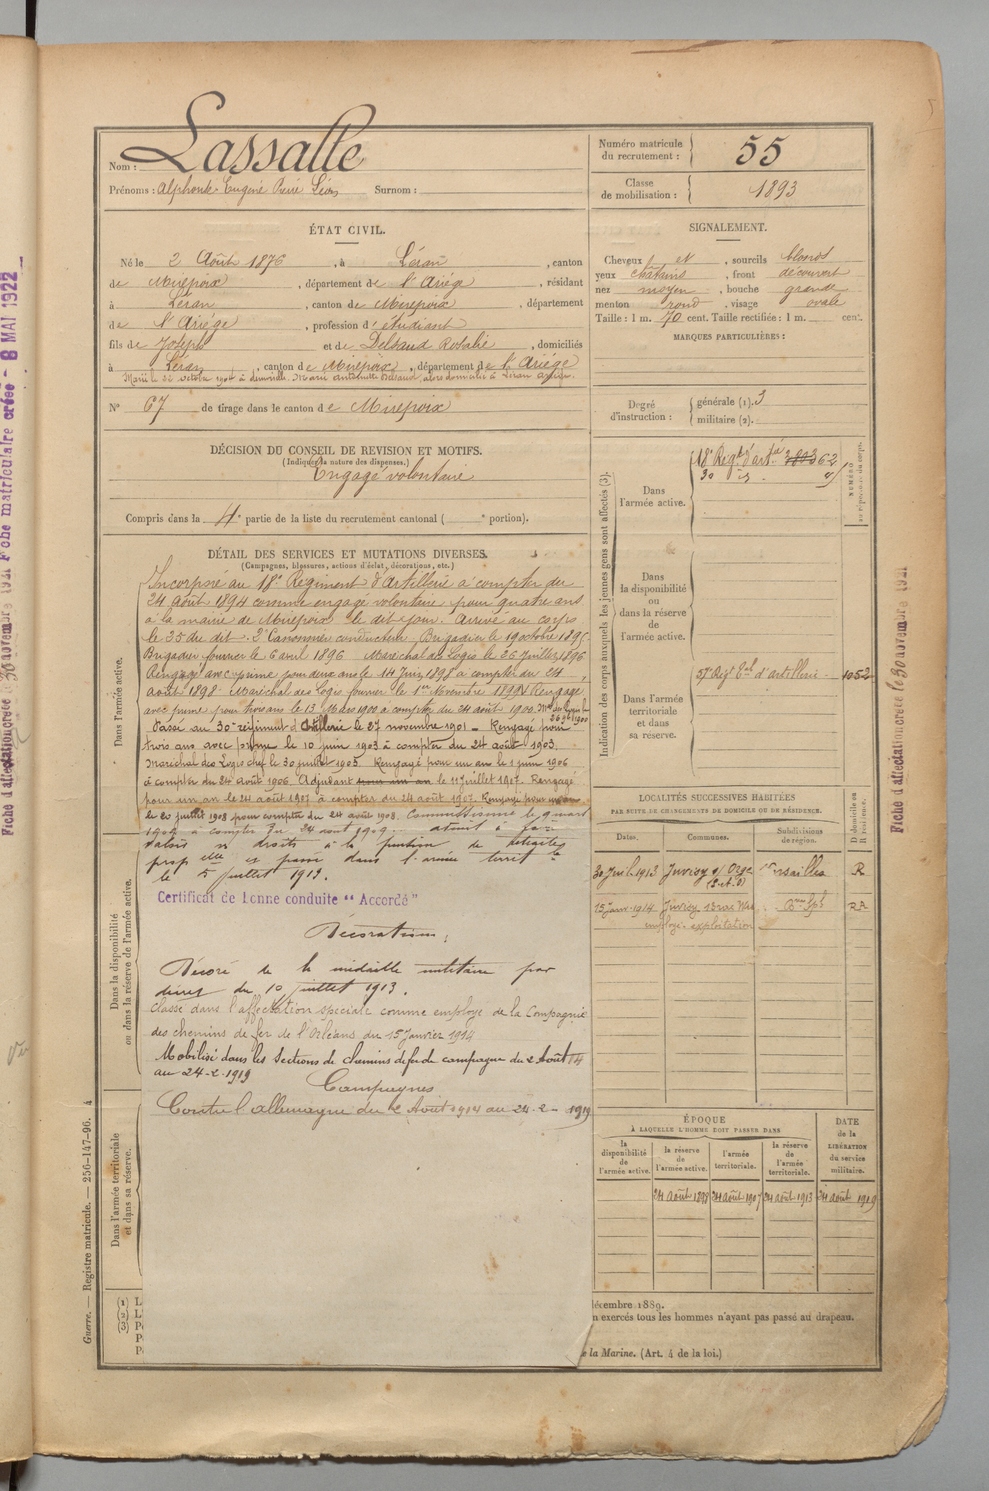 Nom : Lassalle
Prénoms : Alphonse Eugène René Léon Surnom :
Numéro matricule du recrutement : 55
Classe de mobilisation : 1893
ÉTAT CIVIL.
Né le 2 Août 1876, à Léran, canton
de Mirepoix, département de l'Ariège, résidant
à Léran, canton de Mirepoix, département
de l'Ariège, profession d'étudiant
fils de Joseph et de Delbaud Rosalie, domiciliés
à Léran, canton de Mirepoix, département de l'Ariège
N° 67 de tirage dans le canton de Mirepoix
SIGNALEMENT.
Cheveux et, sourcils blonds
yeux châtains, front découvert
nez moyen, bouche grande
menton rond, visage ovale
Taille : 1 m. 70 cent. Taille rectifiée : 1 m. cent.
MARQUES PARTICULIÈRES :
Degré d'instruction : générale (1). 3
militaire (2).
DÉCISION DU CONSEIL DE REVISION ET MOTIFS.
(Indiquer la nature des dispenses.)
Engagé volontaire
Compris dans la 4e partie de la liste du recrutement cantonal ( e portion).
DÉTAIL DES SERVICES ET MUTATIONS DIVERSES.
(Campagnes, blessures, actions d'éclat, décorations, etc.)
Incorporé au 18e Régiment d'Artillerie à compter du
24 Août 1894 comme engagé volontaire pour quatre ans
à la mairie de Mirepoix le dit jour. Arrivé au corps
le 25 du dit. 2e Canonnier conducteur. Brigadier le 19 octobre 1895
Brigadier fourrier le 6 avril 1896 Maréchal des Logis le 26 Juillet 1896
Rengagé avec prime pour deux ans le 14 Juin 1898 à compter du 24
août 1898. Maréchal des Logis fourrier le 1er Novembre 1898. Rengagé
avec prime pour trois ans le 13 Mars 1900 à compter du 24 août 1900.
Passé au 30e régiment d'Artillerie le 27 novembre 1901 – Rengagé pour
trois ans avec prime le 10 juin 1903 à compter du 24 août 1903.
Maréchal des Logis chef le 30 juillet 1905. Rengagé pour un an le 1 juin 1906
à compter du 24 août 1906. Adjudant pour un an le 11 Juillet 1907. Rengagé
pour un an le 24 août 1907 à compter du 24 août 1907. Rengagé pour un an
le 20 juillet 1908 pour compter du 24 août 1908. Commissionné le 9 mars
1909 à compter du 24 août 1909. admis à faire
valoir ses droits à la pension de retraite
proportelle et passé dans l'armée territle
le 5 juillet 1913.
Certificat de bonne conduite " Accordé "
Décorations.
Décoré de la médaille militaire par
décret du 10 juillet 1913.
Classé dans l'affectation spéciale comme employé de la Compagnie
des chemins de fer de l'Orléans du 15 Janvier 1914
Mobilisé dans les Sections de chemins de fer de campagne du 2 Août 14
au 24-2-1919
Campagnes
Contre l'Allemagne du 2 Août 1914 au 24-2-1919
Dans l'armée active.
Dans la disponibilité ou dans la réserve de l'armée active.
Dans l'armée territoriale et dans sa réserve.
Indication des corps auxquels les jeunes gens sont affectés (3).
NUMÉRO au répertoire du corps.
Dans l'armée active.
18e Régt d'Artie 3803 62
30e dis
Dans la disponibilité ou dans la réserve de l'armée active.
Dans l'armée territoriale et dans sa réserve.
57e Régt d'artillerie 1052
LOCALITÉS SUCCESSIVES HABITÉES
PAR SUITE DE CHANGEMENTS DE DOMICILE OU DE RÉSIDENCE.
Dates. Communes. Subdivisions de région. D domicile ou R résidence.
30 Juil. 1913 Juvisy s/ Orge (S. et O) Versailles R
15 janv. 1914 Juvisy RA
employé exploitation
ÉPOQUE
À LAQUELLE L'HOMME DOIT PASSER DANS
la disponibilité de l'armée active.
la réserve de l'armée active.
l'armée territoriale.
la réserve de l'armée territoriale.
DATE de la LIBÉRATION du service militaire.
24 août 1898 24 août 1907 24 août 1913 24 août 1919
(1) L
(2) L'
(3) P
décembre 1889.
n exercés tous les hommes n'ayant pas passé au drapeau.
de la Marine. (Art. 4 de la loi.)
Guerre. — Registre matricule. — 256-147-96. 4
Fiche d'affectation créée le 30 novembre 1921 Fiche matriculaire créée - 8 MAI 1922
Fiche d'affectation créée le 30 novembre 1921